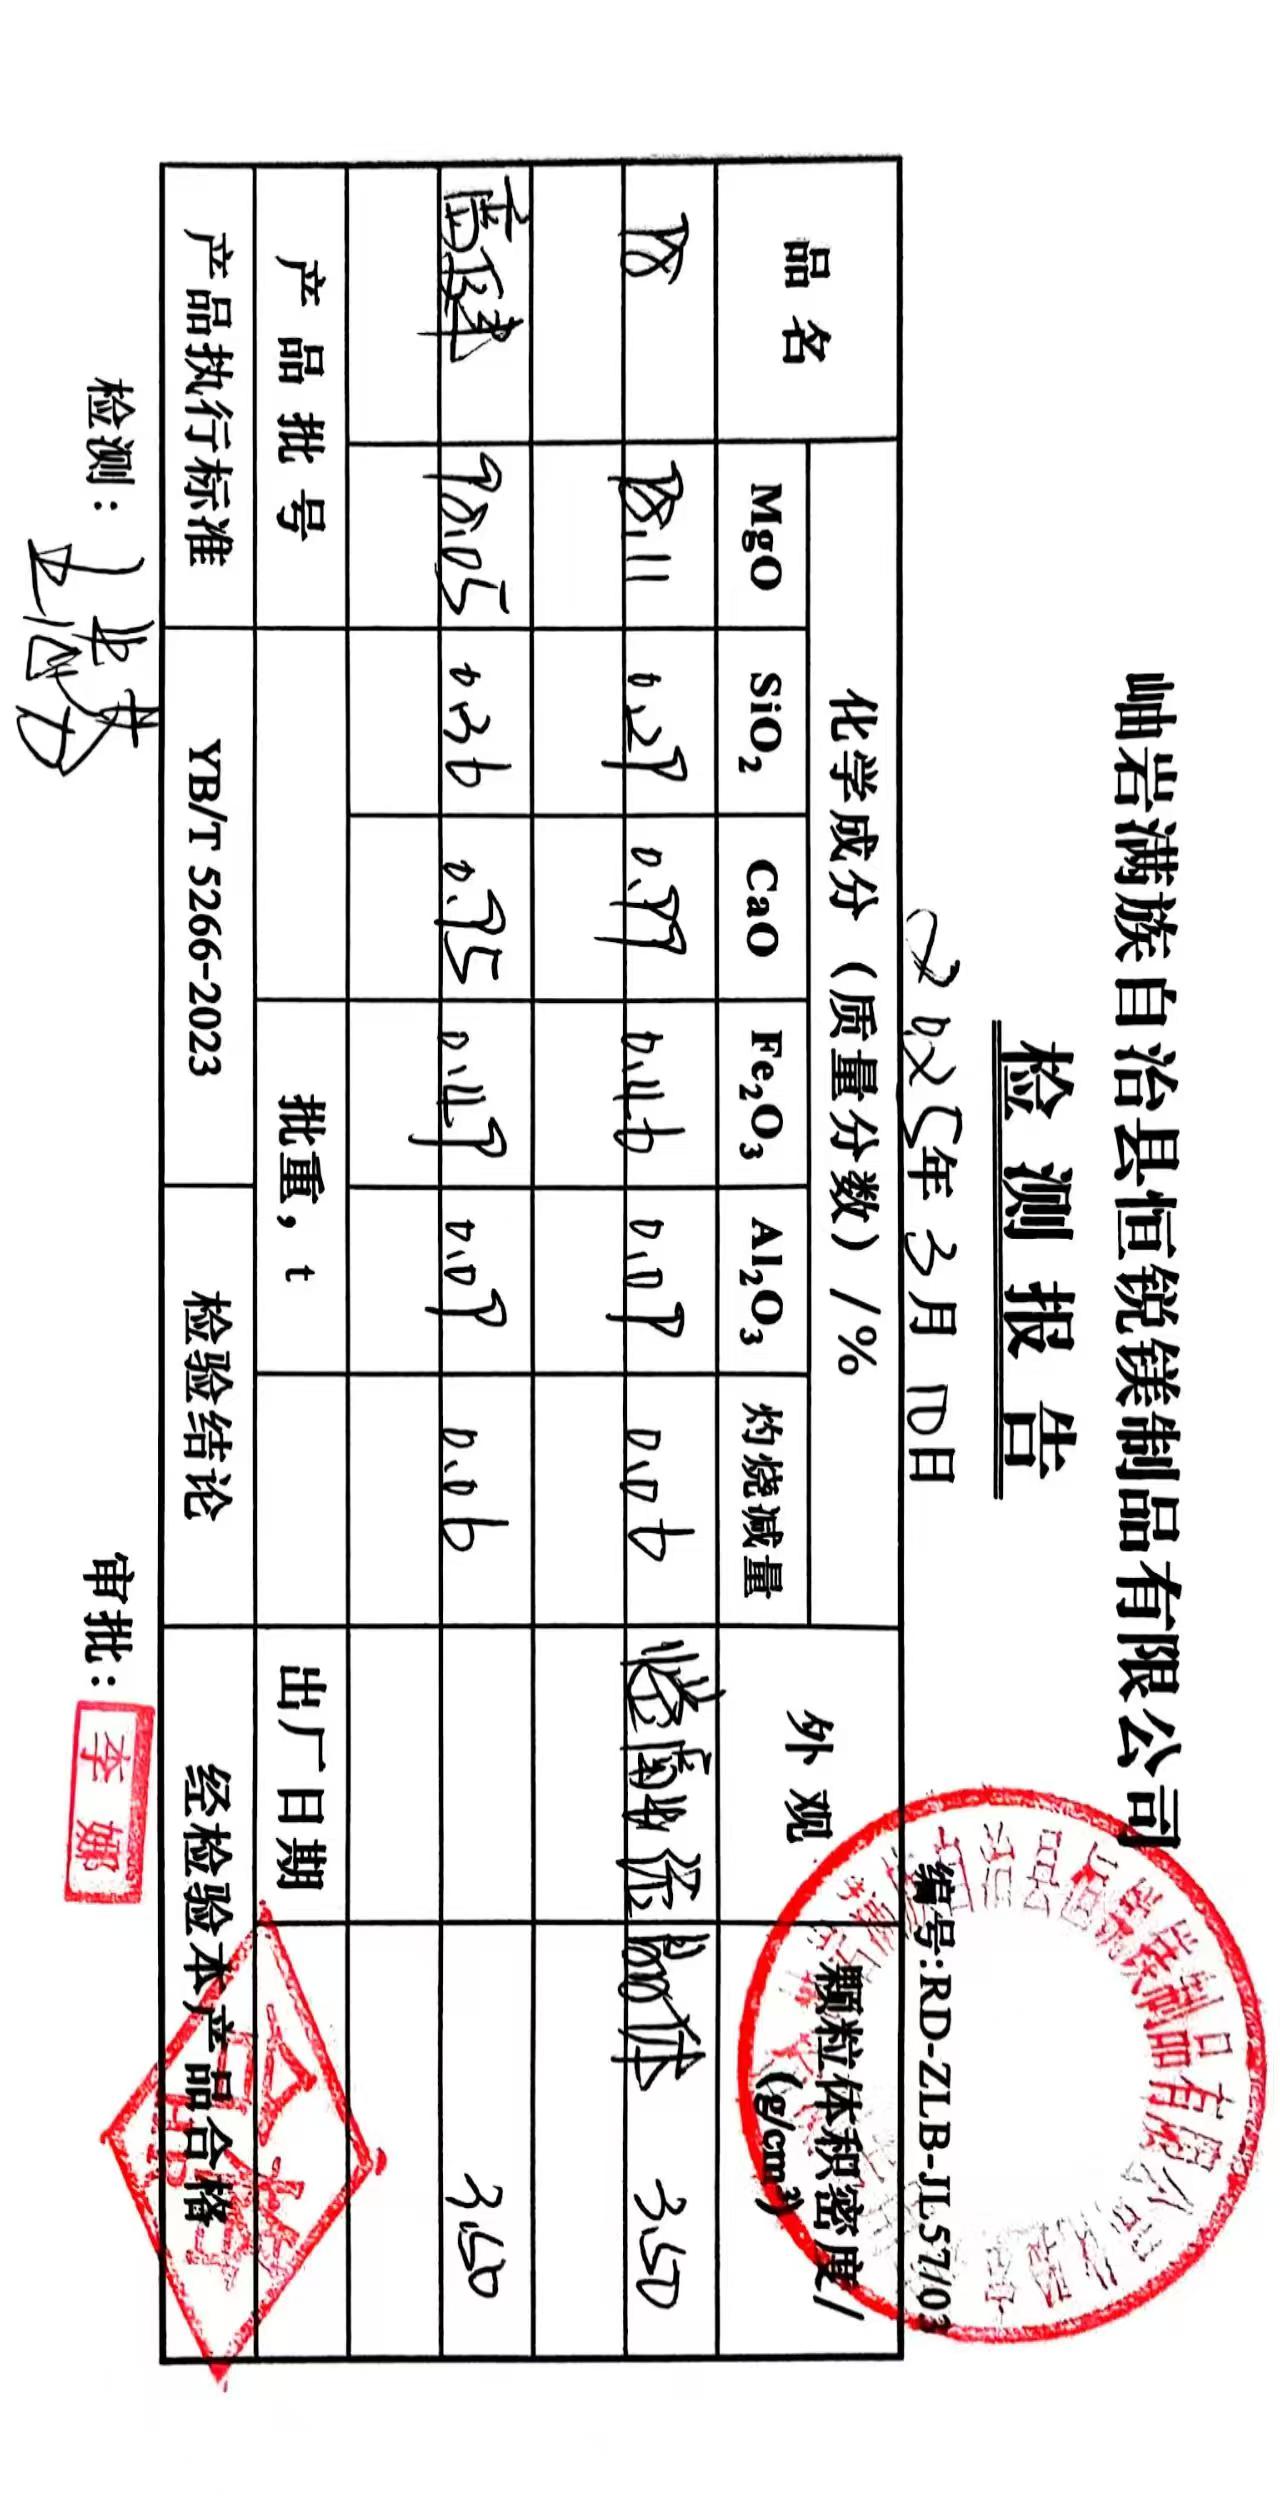 岫岩满族自治县恒锐镁制品有限公司
检测报告
2025年3月10日 编号:RD-ZLB-JL57/03
品名 化学成分（质量分数）/% 外观 颗粒体积密度/(g/cm³)
MgO SiO₂ CaO Fe₂O₃ Al₂O₃ 灼烧减量
98 98.11 0.29 0.99 0.46 0.09 0.06 3.50
98.05 0.36 0.95 0.49 0.09 0.06 3.50
产品批号 批重，t 出厂日期
产品执行标准 YB/T 5266-2023 检验结论 经检验本产品合格
检测： 审批：李娜